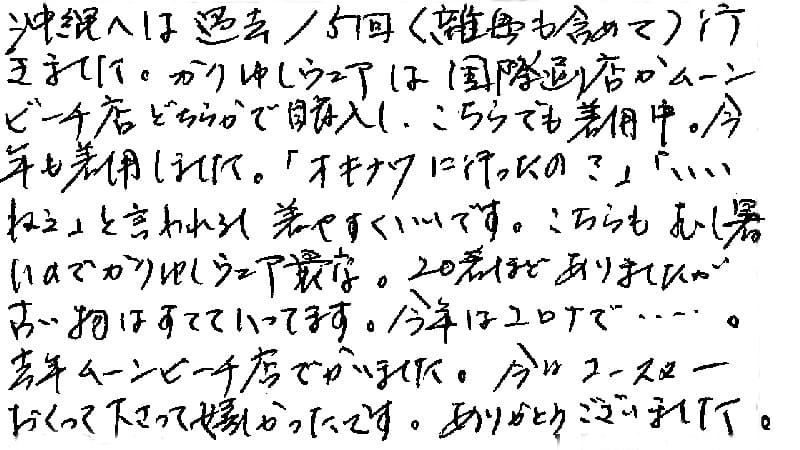 沖縄へは過去15回(離島も含めて)行
きました。かりゆしウェアは国際通り店かムーン
ビーチ店どちらかで購入し、こちらでも着用中。今
年も着用しました。「オキナワに行ったの?」「いい
ねえ」と言われるし着やすくいいです。こちらもむし暑
いのでかりゆしウェア最高。20着ほどありましたが
古い物はすてていってます。今年はコロナで‥‥。
去年ムーンビーチ店でかいました。今は
おくって下さって嬉しかったです。ありがとうございました。